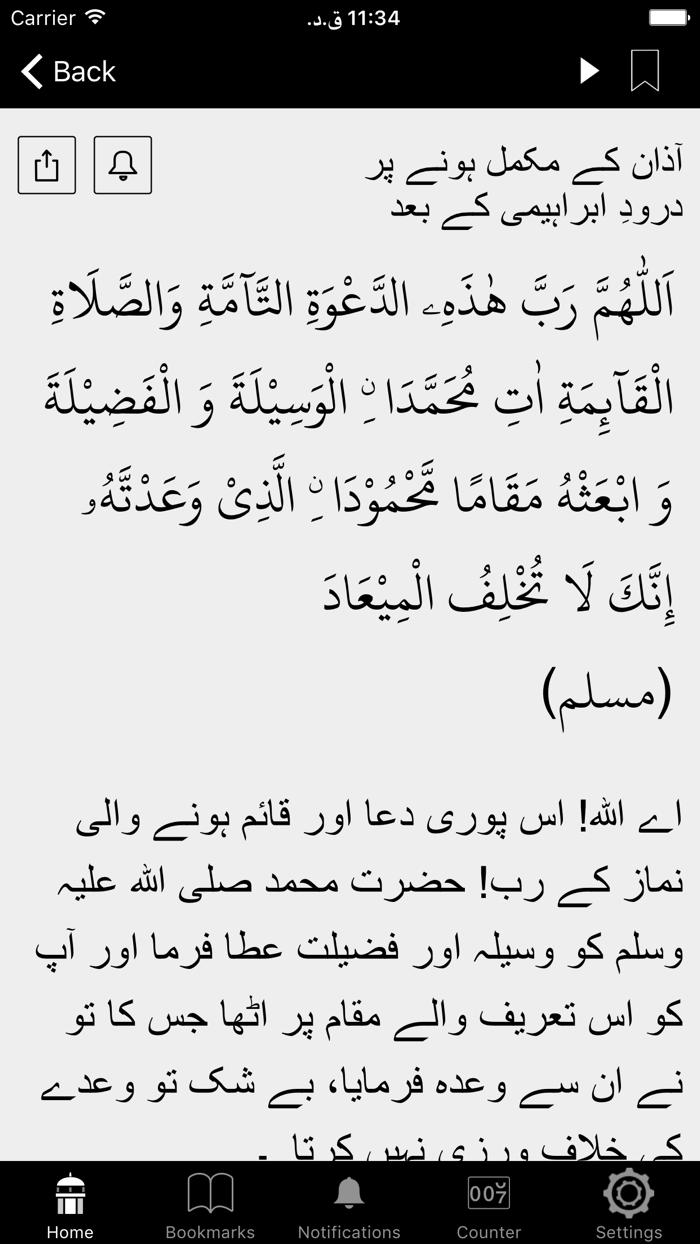 Carrier 11:34 ق.د.
Back
آذان کے مکمل ہونے پر
درودِ ابراہیمی کے بعد
اَللّٰهُمَّ رَبَّ هٰذَهِ الدَّعْوَةِ التَّآمَّةِ وَالصَّلَاةِ
الْقَآئِمَةِ اٰتِ مُحَمَّدَا نِ الْوَسِيْلَةَ وَ الْفَضِيْلَةَ
وَ ابْعَثْهُ مَقَامًا مَّحْمُوْدَا نِ الَّذِىْ وَعَدْتَّهُ
إِنَّكَ لَا تُخْلِفُ الْمِيْعَادَ
(مسلم)
اے اللہ! اس پوری دعا اور قائم ہونے والی
نماز کے رب! حضرت محمد صلی اللہ علیہ
وسلم کو وسیلہ اور فضیلت عطا فرما اور آپ
کو اس تعریف والے مقام پر اٹھا جس کا تو
نے ان سے وعدہ فرمایا، بے شک تو وعدے
کی خلاف ورزی نہیں کرتا ۔
Home Bookmarks Notifications 007 Counter Settings